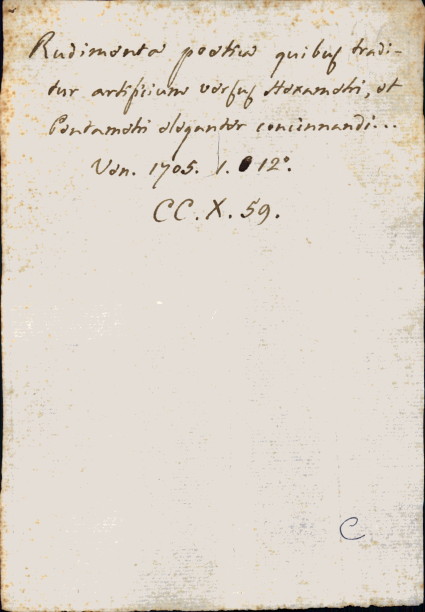 Rudimenta poetica quibus tradi-
tur artificium versus Hexametri, et
Pentametri eleganter concinnandi...
Ven. 1705. 1. 12°.
CC. X. 59.
C